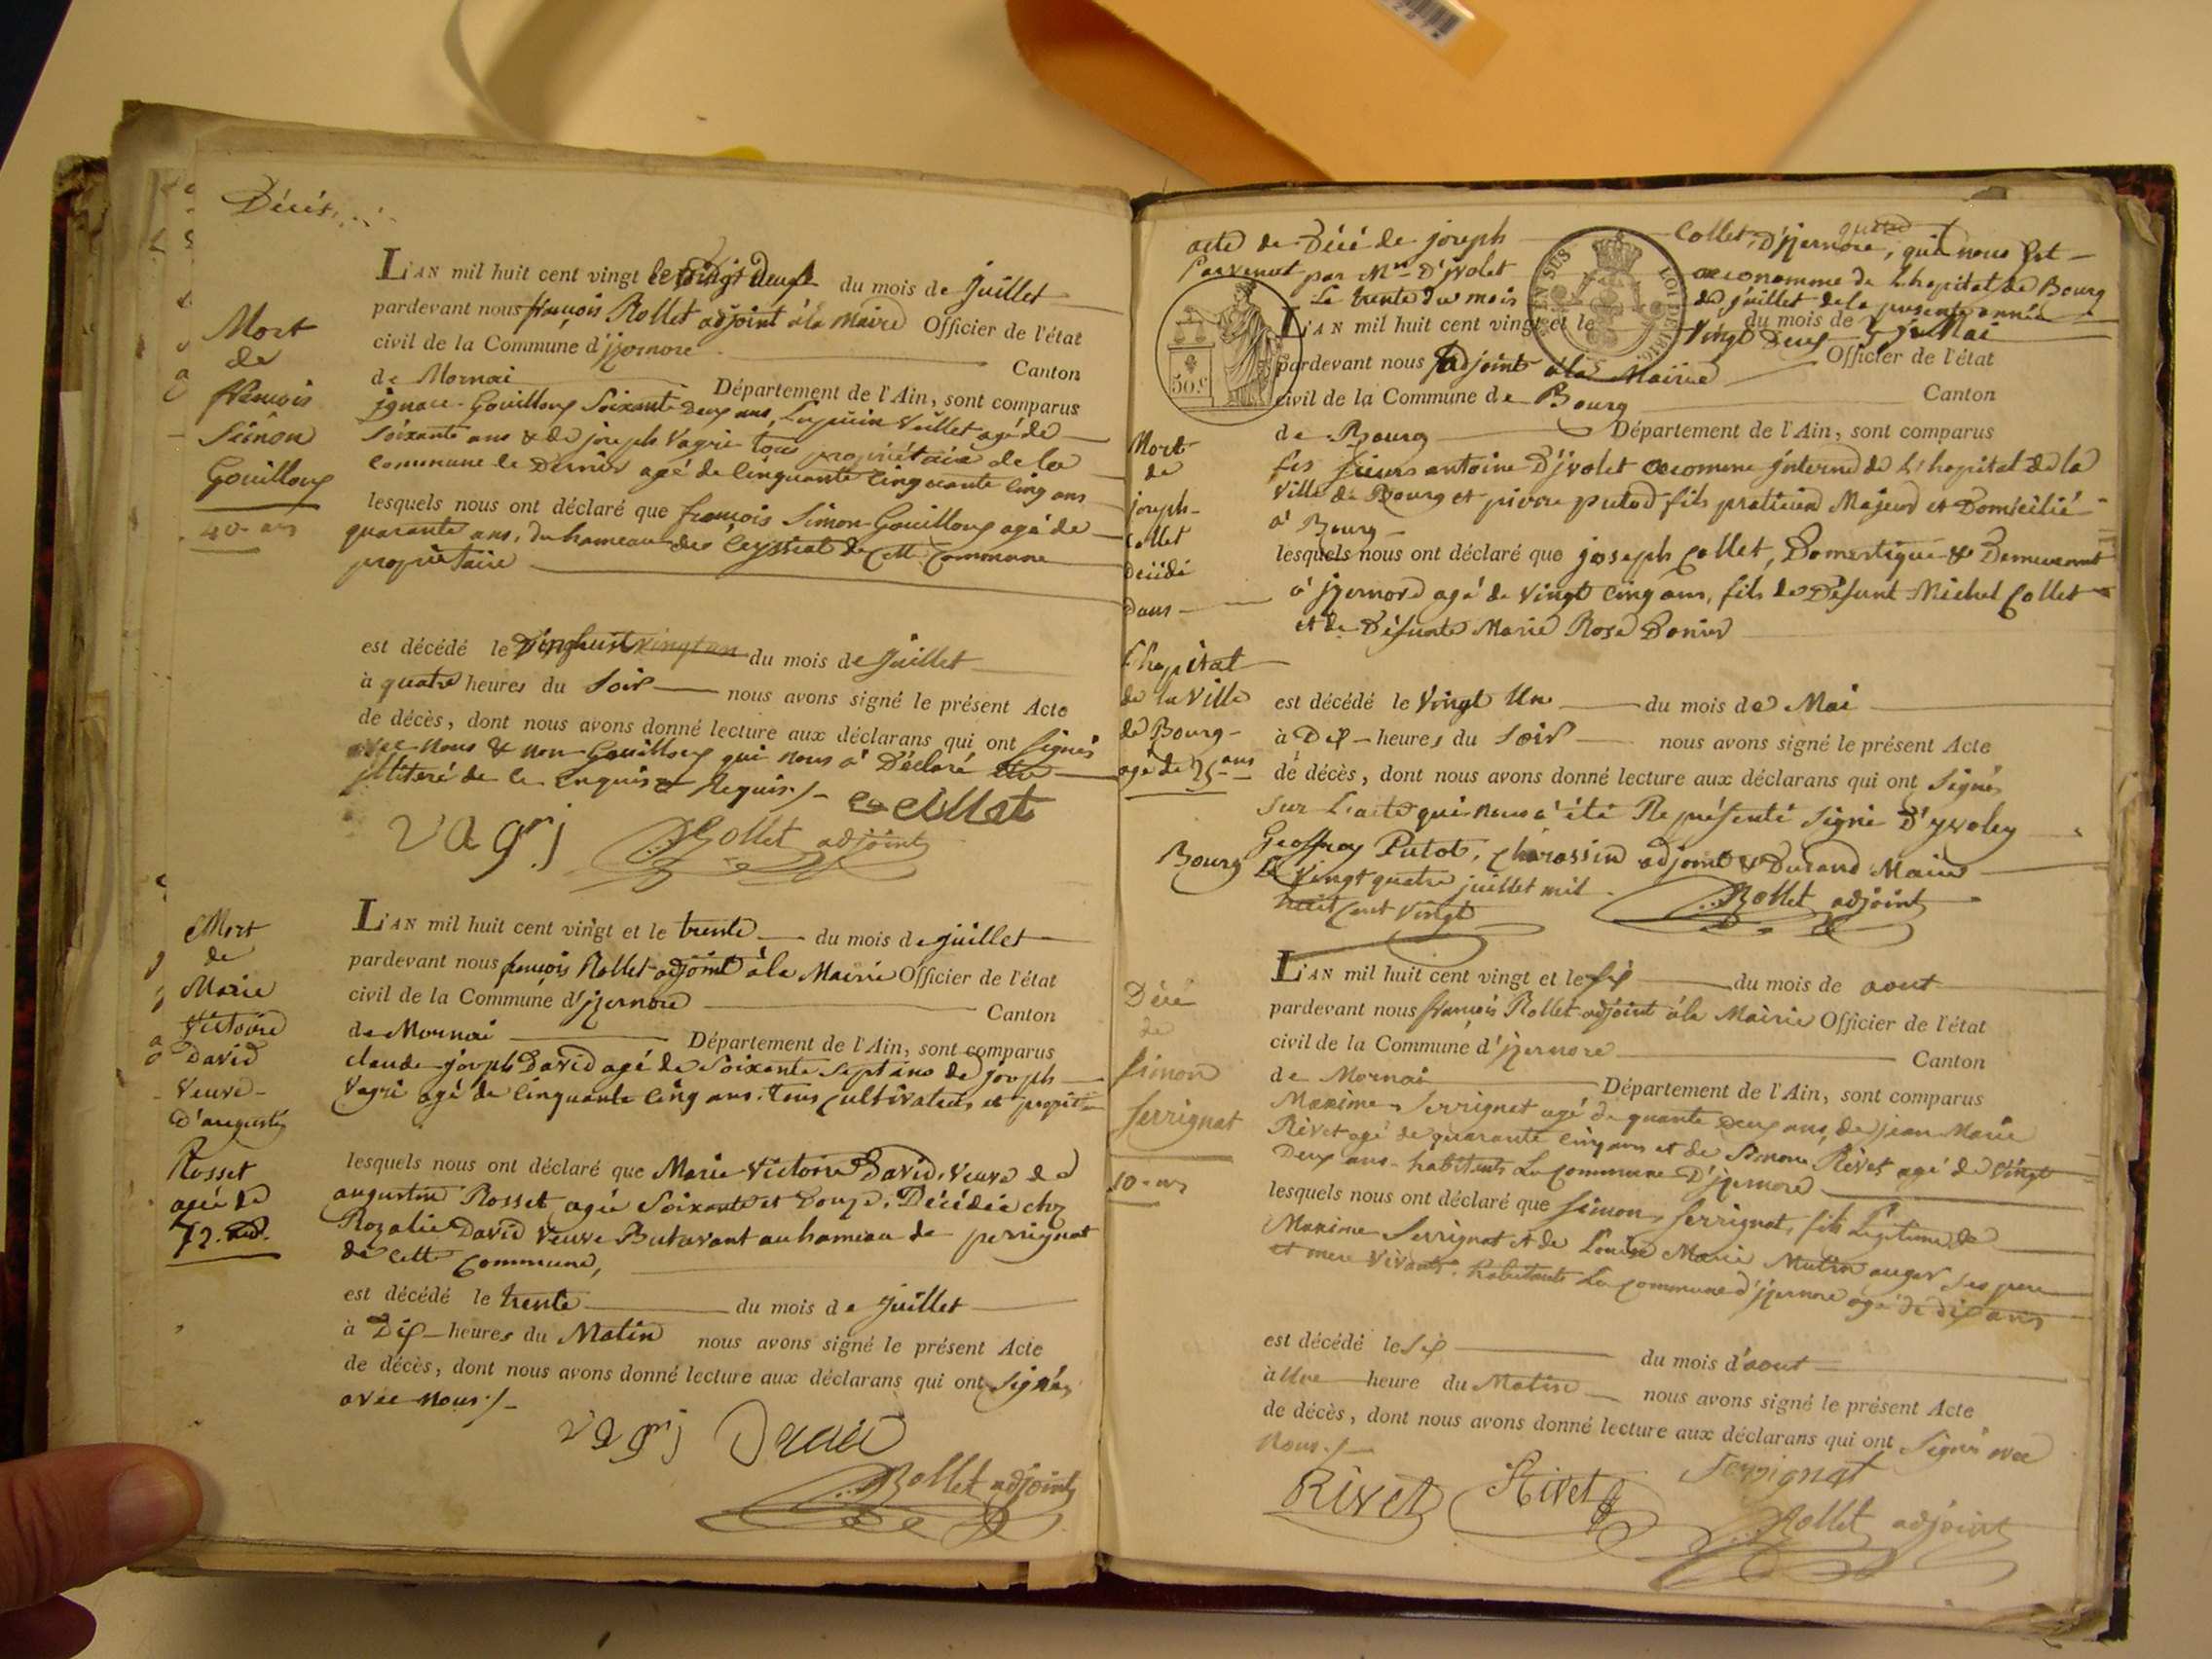 Décès
Mort
de
francois
Simon
Gouilloux
40 ans
L'AN mil huit cent vingt le vingt deux du mois de juillet
pardevant nous françois Rollet adjoint à la Maire Officier de l'état
civil de la Commune d'jzernore Canton
de Mornai Département de l'Ain, sont comparus
jgnace Gouilloux Soixante deux ans, Veillet agé de
Soixante ans & de joseph Vagri tous propriétaire de la
Commune le Dernier agé de Cinquante Cinquante Cinq ans
lesquels nous ont déclaré que francois Simon Gouilloux agé de
quarante ans, du hameau de Ceyssiat de Cette Commune
proprietaire
est décédé le du mois de juillet
à quatre heures du Soir nous avons signé le présent Acte
de décès, dont nous avons donné lecture aux déclarans qui ont Signés
avec nous & non Gouilloux qui nous a Déclaré etre
jlliteré de ce Enquis & Requis ./.
Veillet
vagrj Rollet adjoint
Mort
de
Marie
Victoire
David
Veuve
D'augustin
Rosset
agée de
72. ans.
L'AN mil huit cent vingt et le trente du mois de juillet
pardevant nous francois Rollet adjoint à la Mairie Officier de l'état
civil de la Commune d'jzernore Canton
de Mornai Département de l'Ain, sont comparus
claude joseph David agé de Soixante Sept ans de joseph
Vagri agé de Cinquante Cinq ans. tous Cultivateurs et
lesquels nous ont déclaré que Marie Victoire David, Veuve de
augustin Rosset agée Soixante et Douze. Décédée chez
Rozalie David Veuve Butavant au hameau de perrignat
de Cette Commune,
est décédé le trente du mois de juillet
à Dix heures du Matin nous avons signé le présent Acte
de décès, dont nous avons donné lecture aux déclarans qui ont Signés
avec nous ./.
vagrj David
Rollet adjoint
acte de Décé de joseph Collet, D'jzernore, qui nous Est
Parvenut par Mr D'jvolet oeconomme de L'hopital de Bourg
Le trente du mois de juillet de la presente année
EN SUS
LOI DE 1816.
50 c
L'AN mil huit cent vingt et le Vingt Deux du mois de Mai
pardevant nous adjoint à la Mairie Officier de l'état
civil de la Commune de Bourg Canton
de Bourg Département de l'Ain, sont comparus
Mort
de
joseph
Collet
Décédé
dans
L'hopital
de la Ville
de Bourg
agé de 25 ans
les Sieurs antoine D'jvolet oeconome jnterne de L'hopital de la
Ville de Bourg et pierre putod fils praticien Majeur et Domicilié
à Bourg
lesquels nous ont déclaré que joseph Collet, Domestique & Demeurant
à jzernore agé de Vingt Cinq ans, fils de Défunt Michel Collet
et de Défunte Marie Rose
est décédé le Vingt Un du mois de Mai
à Dix heures du Soir nous avons signé le présent Acte
de décès, dont nous avons donné lecture aux déclarans qui ont Signés
Sur L'acte qui nous à été Représenté Signé D'yvoley
Geoffroy Putot, Charassin adjoint & Durand Maire
Bourg Le Vingt quatre juillet mil
huit Cent Vingt
Rollet adjoint
Décé
de
Simon
Serrignat
10 ans
L'AN mil huit cent vingt et le Six du mois de aout
pardevant nous francois Rollet adjoint à la Mairie Officier de l'état
civil de la Commune d'jzernore Canton
de Mornai Département de l'Ain, sont comparus
Maxime Serrignat agé de quante Deux ans, de jean Marie
Rivet agé de quarante Cinq ans et de Simon Rivet agé de Vingt
Deux ans habitants La Commune D'jzernore
lesquels nous ont déclaré que Simon Serrignat, fils Légitime de
Maxime Serrignat et de Louise Marie Mutin auger Ses pere
et mere Vivants. habitants La Commune d'jzernore agé de dix ans
est décédé le Six du mois d'aout
à Une heure du Matin nous avons signé le présent Acte
de décès, dont nous avons donné lecture aux déclarans qui ont Signés avec
nous ./.
Rivet Rivet Serrignat
Rollet adjoint